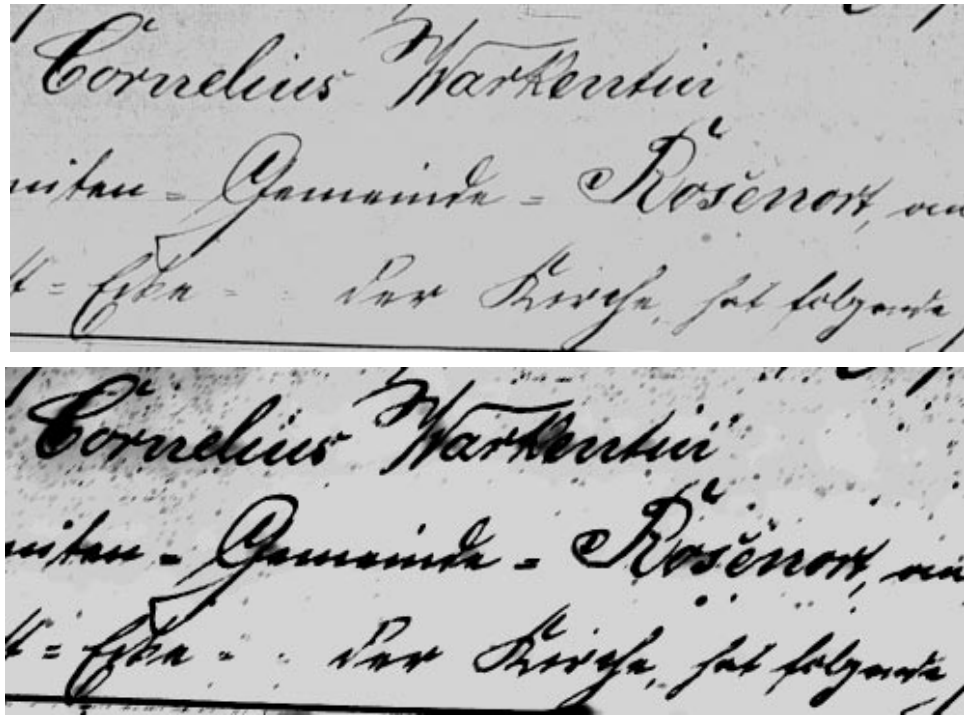 Cornelius Warkentin
niten = Gemeinde = Rosenort, an
t = Ecke - - der Kirche, hat folgende
Cornelius Warkentin
niten = Gemeinde = Rosenort, an
t = Ecke - - der Kirche, hat folgende